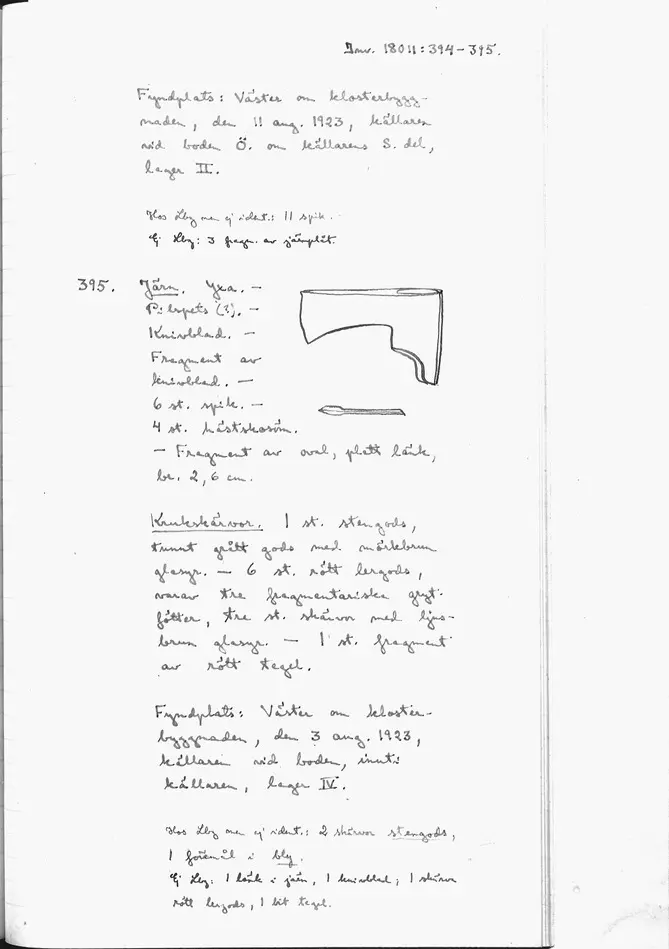 Inv. 18011:394-395.
Fyndplats: Väster om klosterbygg-
naden, den 11 aug. 1923, källaren
vid boden Ö. om källarens S. del,
lager II.
Hos Lbg men ej ident.: 11 spik.
Ej Lbg: 3 fragm. av järnplåt.
395. Järn. Yxa. -
Pilspets (?). -
Knivblad. -
Fragment av
knivblad. -
6 st. spik. -
4 st. hästskosöm.
- Fragment av oval, platt länk,
br. 2,6 cm.
Krukskärvor. 1 st. stengods,
tunnt grått gods med mörkbrun
glasyr. - 6 st. rött lergods,
varav tre fragmentariska gryt-
fötter, tre st. skärvor med ljus-
brun glasyr. - 1 st. fragment
av rött tegel.
Fyndplats: Väster om kloster-
byggnaden, den 3 aug. 1923,
källaren vid boden, inuti
källaren, lager IV.
Hos Lbg men ej ident.: 2 skärvor stengods,
1 föremål i bly.
Ej Lbg: 1 länk i järn, 1 knivblad; 1 skärva
rött lergods, 1 bit tegel.